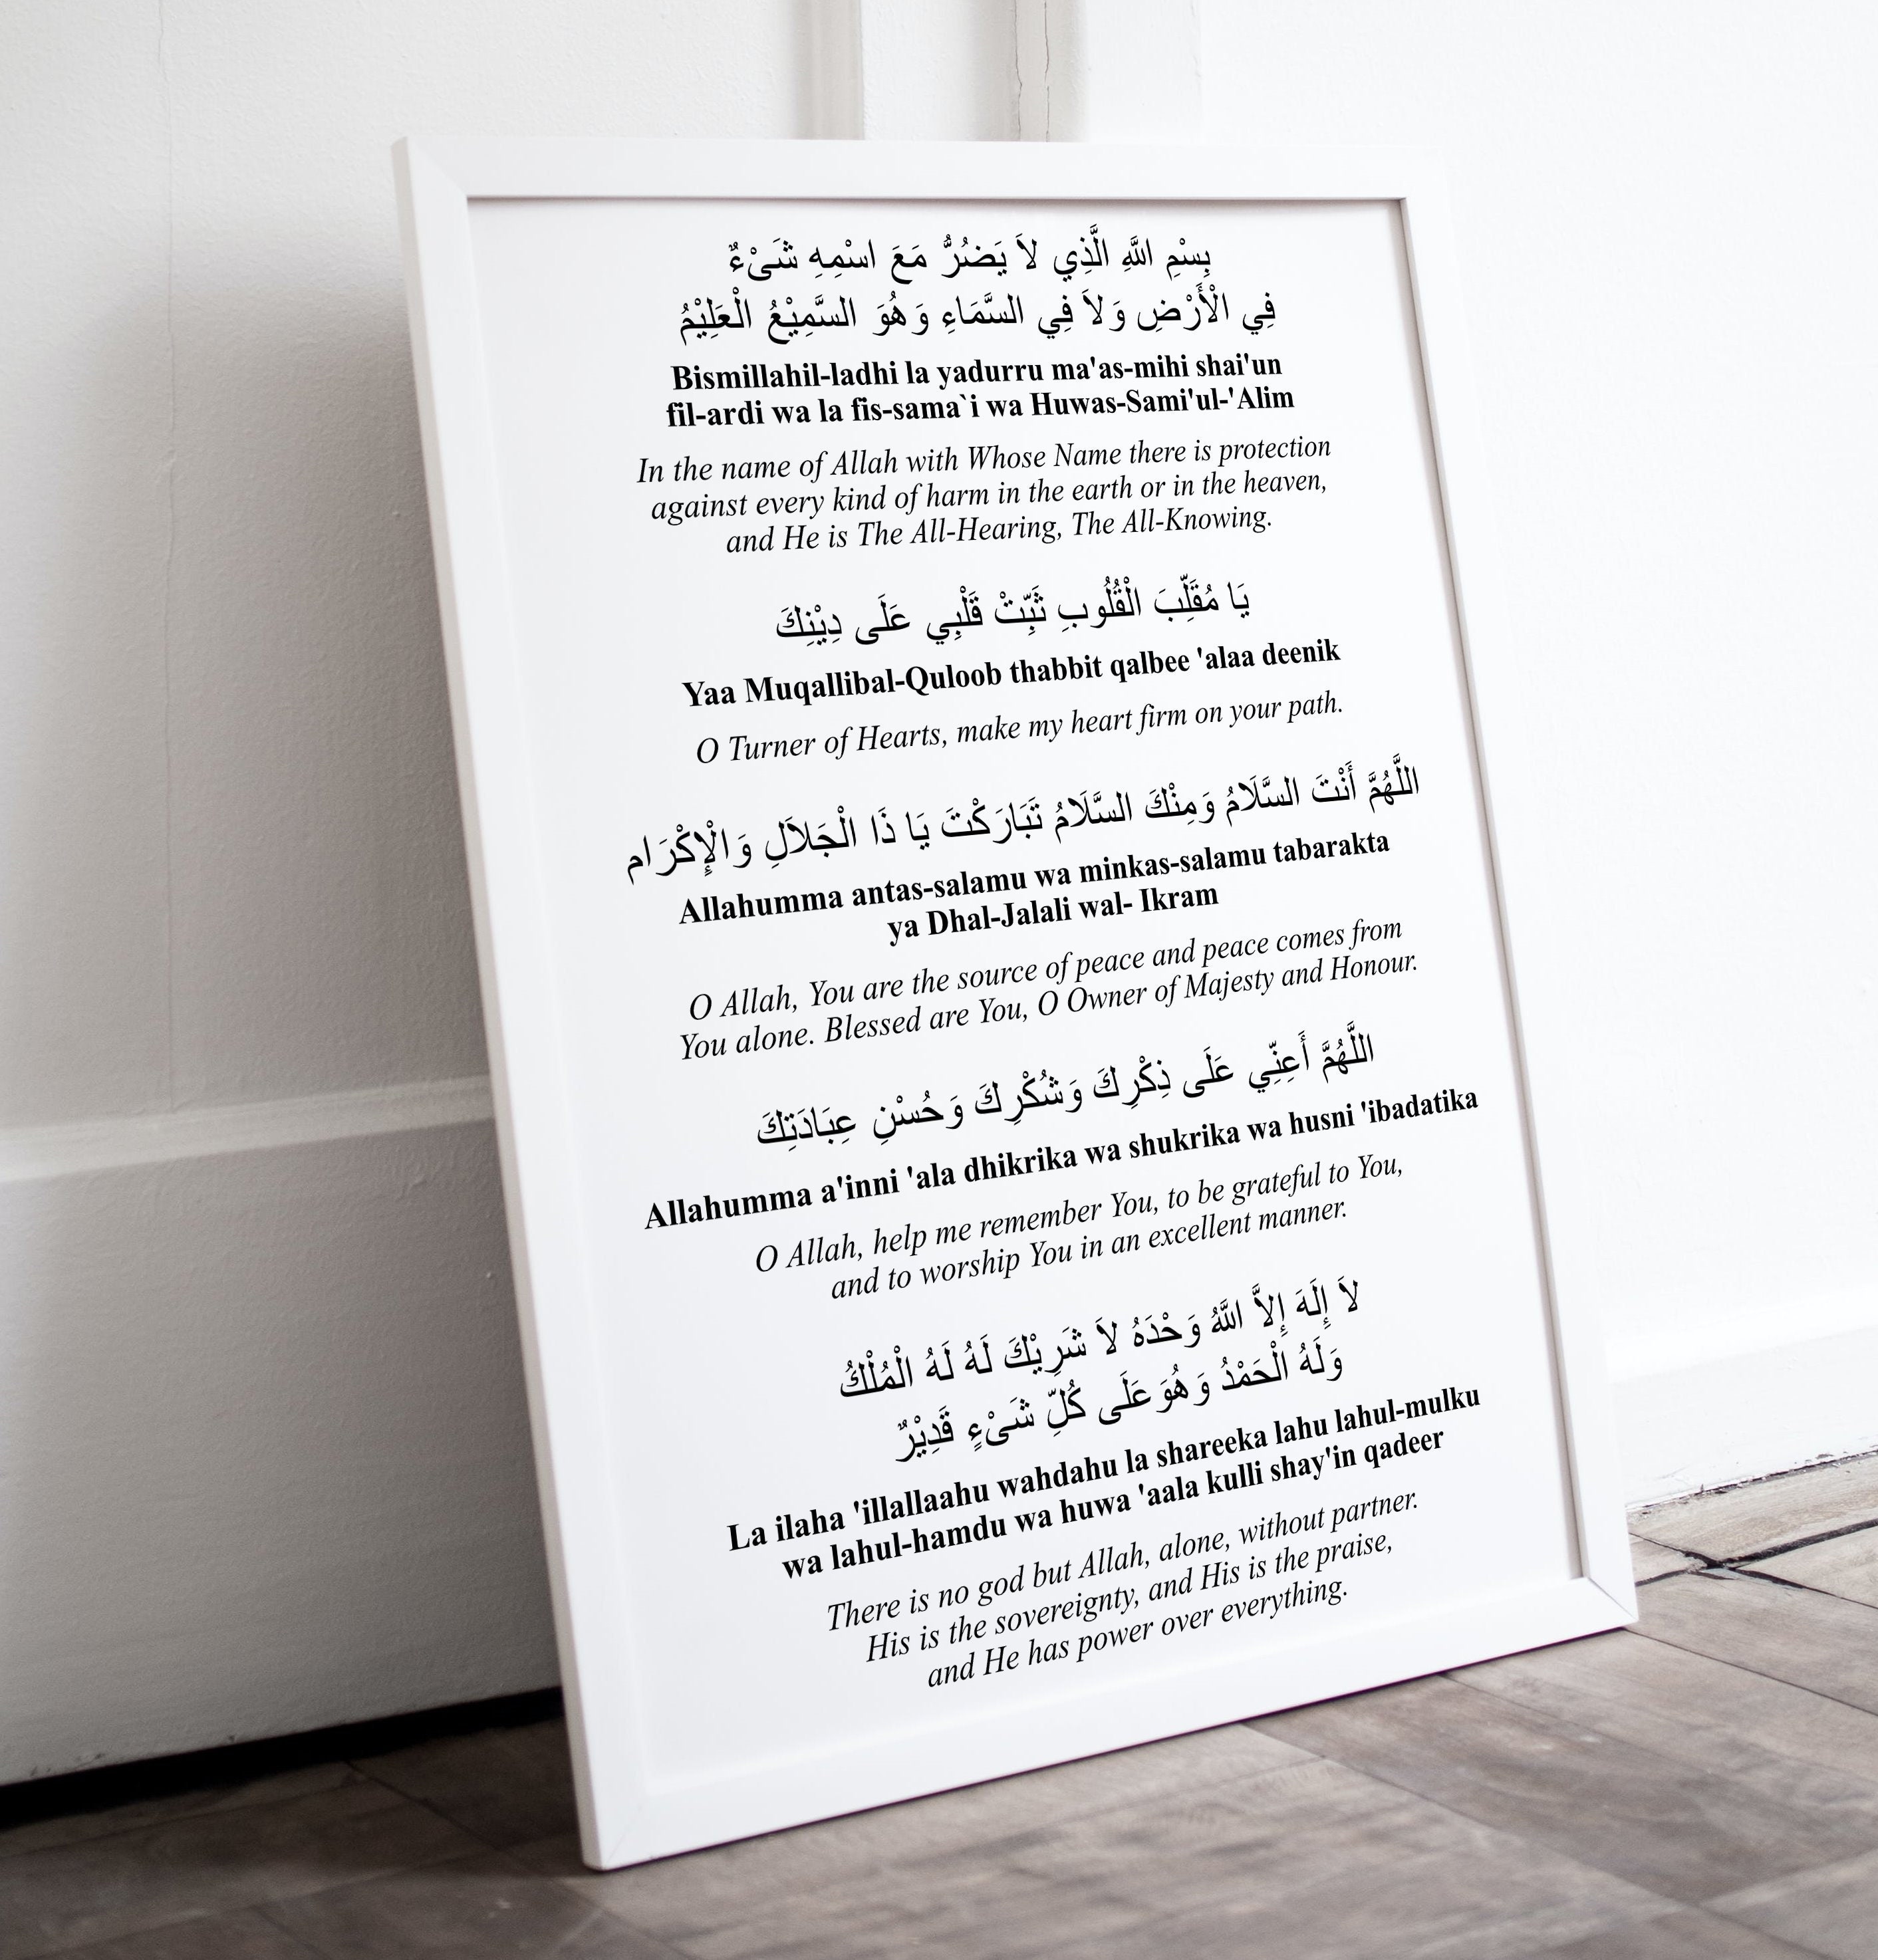 بِسْمِ اللَّهِ الَّذِي لاَ يَضُرُّ مَعَ اسْمِهِ شَىْءٌ
فِي الْأَرْضِ وَلاَ فِي السَّمَاءِ وَهُوَ السَّمِيْعُ الْعَلِيْمُ
Bismillahil-ladhi la yadurru ma'as-mihi shai'un
fil-ardi wa la fis-sama`i wa Huwas-Sami'ul-'Alim
In the name of Allah with Whose Name there is protection
against every kind of harm in the earth or in the heaven,
and He is The All-Hearing, The All-Knowing.
يَا مُقَلِّبَ الْقُلُوبِ ثَبِّتْ قَلْبِي عَلَى دِيْنِكَ
Yaa Muqallibal-Quloob thabbit qalbee 'alaa deenik
O Turner of Hearts, make my heart firm on your path.
اللَّهُمَّ أَنْتَ السَّلَامُ وَمِنْكَ السَّلَامُ تَبَارَكْتَ يَا ذَا الْجَلاَلِ وَالْإِكْرَام
Allahumma antas-salamu wa minkas-salamu tabarakta
ya Dhal-Jalali wal- Ikram
O Allah, You are the source of peace and peace comes from
You alone. Blessed are You, O Owner of Majesty and Honour.
اللَّهُمَّ أَعِنِّي عَلَى ذِكْرِكَ وَشُكْرِكَ وَحُسْنِ عِبَادَتِكَ
Allahumma a'inni 'ala dhikrika wa shukrika wa husni 'ibadatika
O Allah, help me remember You, to be grateful to You,
and to worship You in an excellent manner.
لاَ إِلَهَ إِلاَّ اللَّهُ وَحْدَهُ لاَ شَرِيْكَ لَهُ لَهُ الْمُلْكُ
وَلَهُ الْحَمْدُ وَهُوَ عَلَى كُلِّ شَىْءٍ قَدِيْرٌ
La ilaha 'illallaahu wahdahu la shareeka lahu lahul-mulku
wa lahul-hamdu wa huwa 'aala kulli shay'in qadeer
There is no god but Allah, alone, without partner.
His is the sovereignty, and His is the praise,
and He has power over everything.